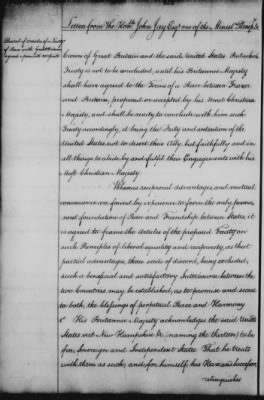 Letters from The Honble. John Jay Esqr. one of the Minist. Plenip.
Crown of Great Britain and the said United States. But which
Treaty is not to be concluded, until his Britannic Majesty
shall have agreed to the Terms of a Peace between France
and Britain, proposed or accepted by his most Christian
Majesty, and shall be ready to conclude with him such
Treaty accordingly, it being the Duty and intention of the
United States not to desert their Ally, but faithfully and in
all things to abide by and fulfil their Engagements with his
Most Christian Majesty
Whereas reciprocal advantages, and mutual
convenience are found by experience to form the only perma-
nent foundation of Peace and Friendship between States, it
is agreed to frame the Articles of the proposed Treaty on
such Principles of liberal equality and reciprocity, as that
partial advantages, those seeds of discord, being excluded,
such a beneficial and satisfactory Intercourse between the
two Countries may be established, as to promise and secure
to both, the blessings of perpetual Peace and Harmony
His Britannic Majesty acknowledges the said United
States viz. New Hampshire &c. (naming the thirteen) to be
free, Sovereign and Independent States. That he treats
with them as such; and for himself, his Heirs and Successors
relinquishes